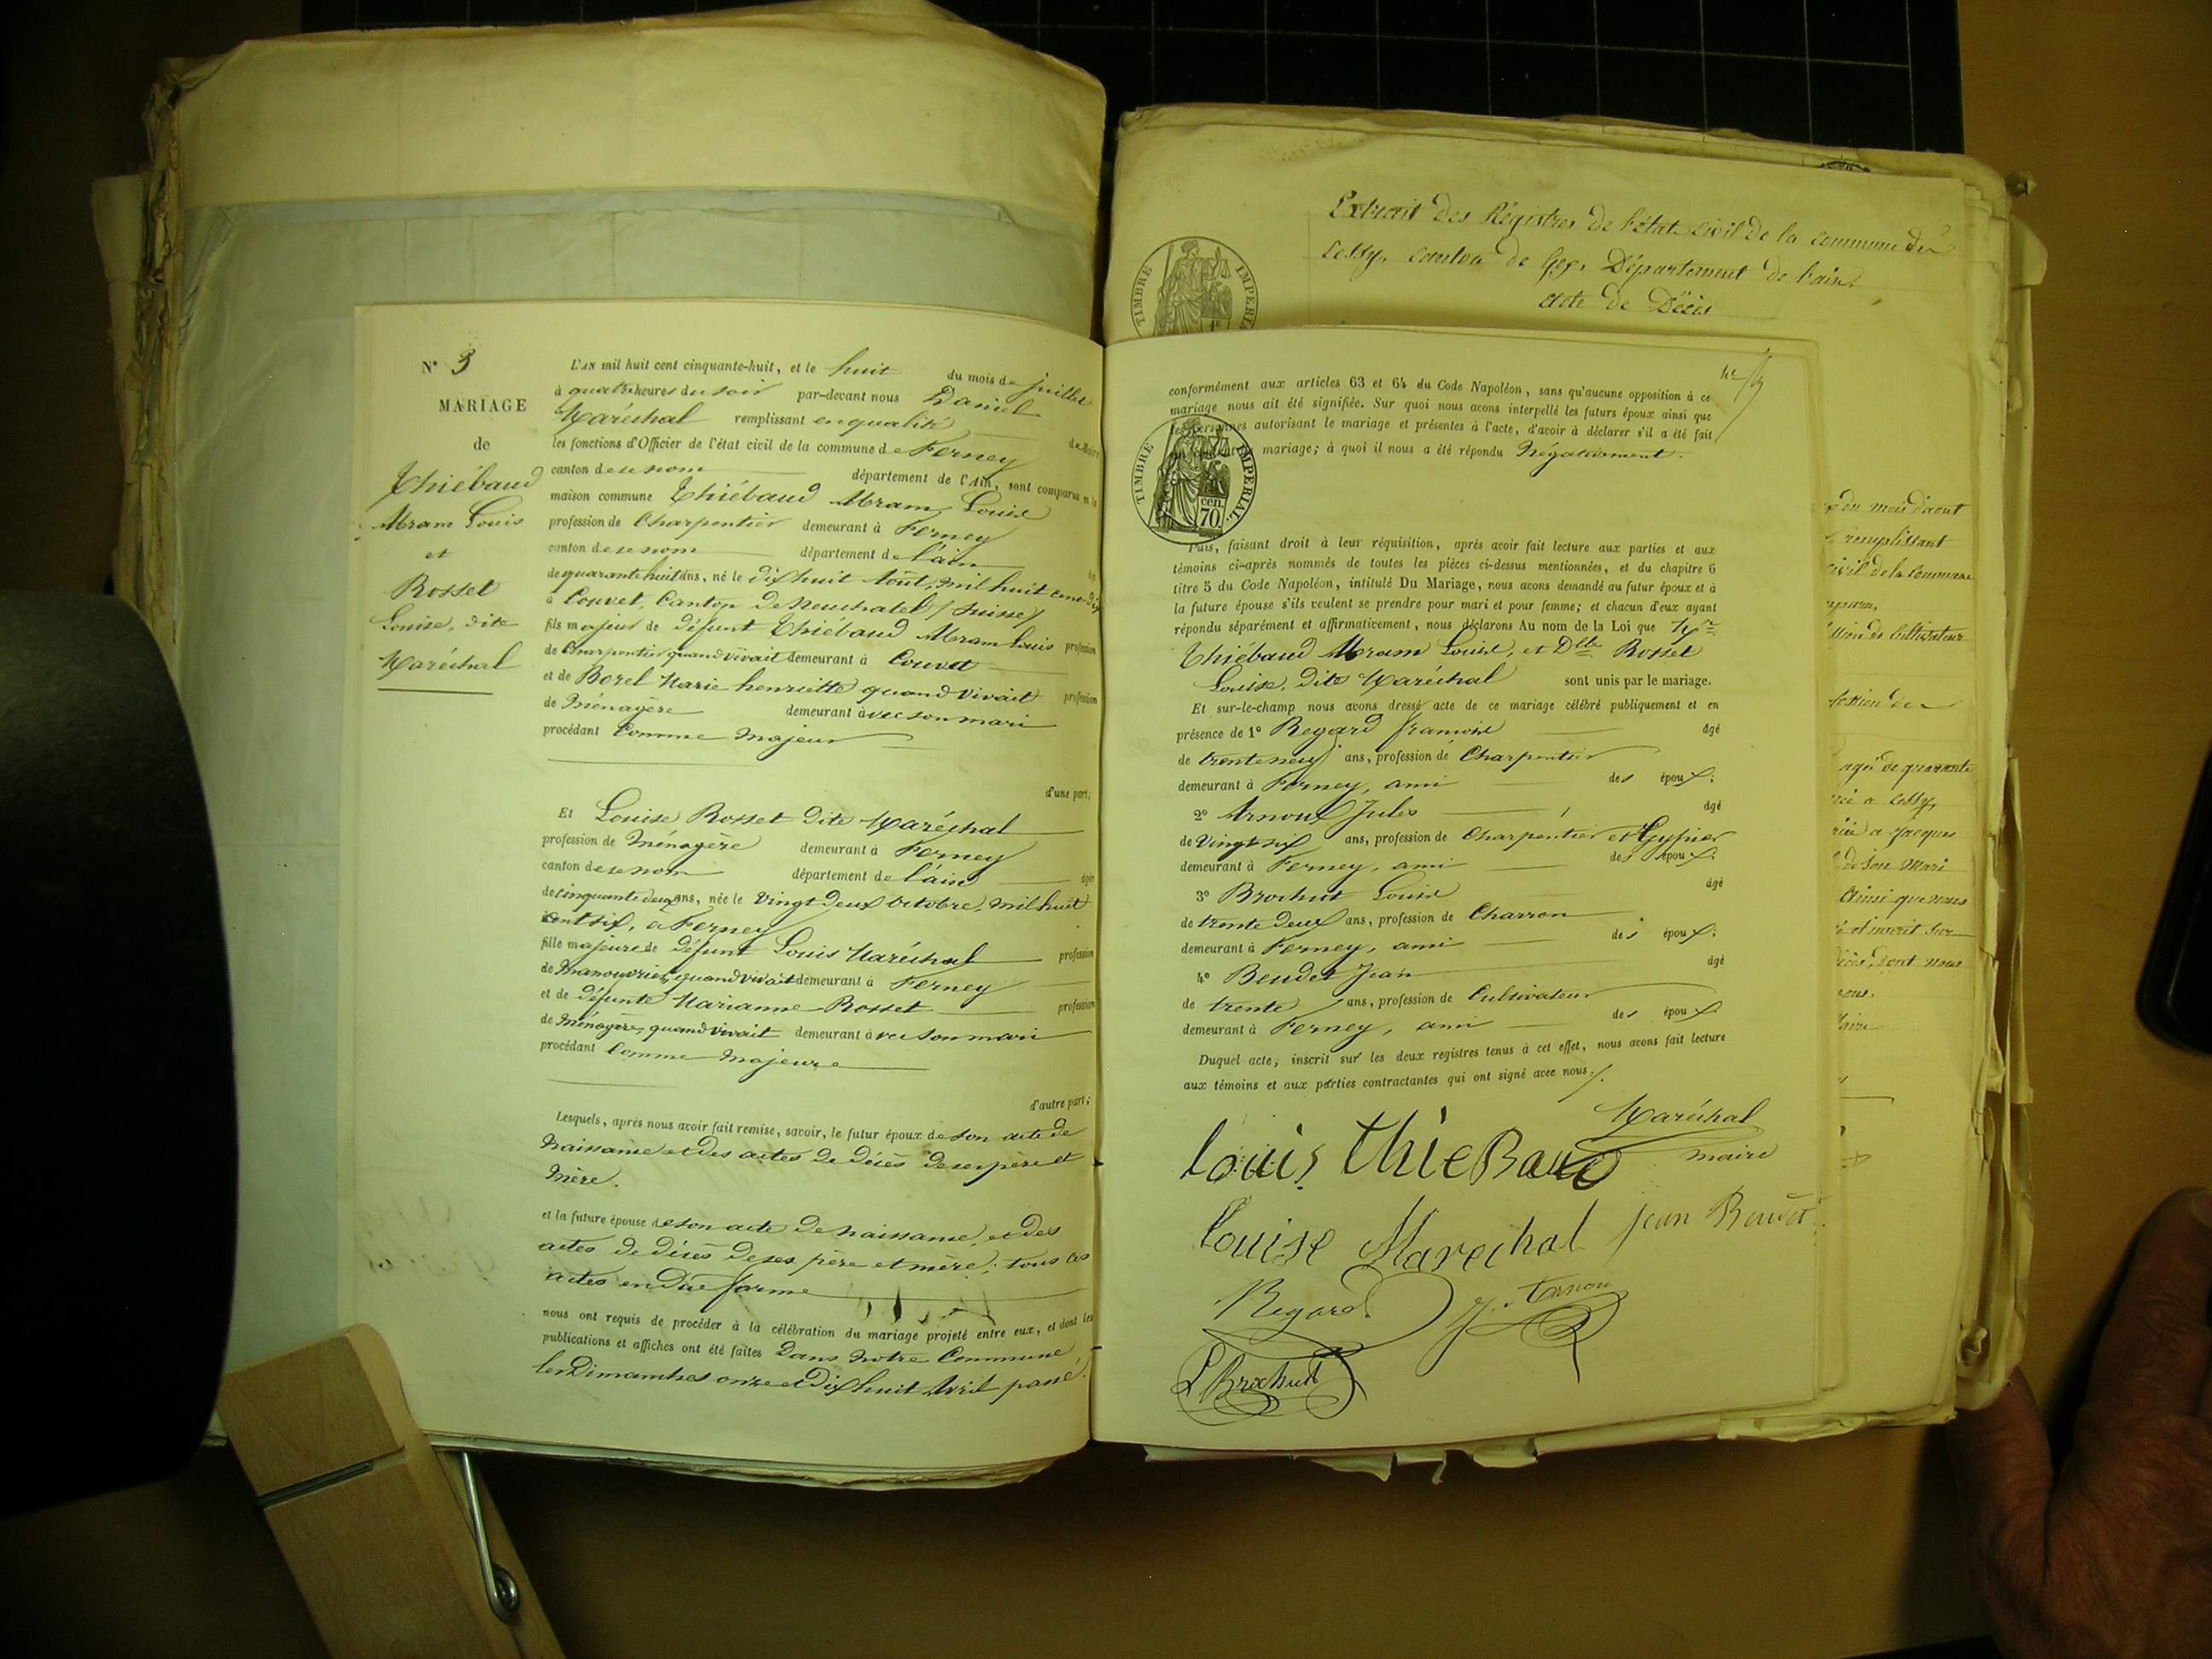 N° 3
MARIAGE
de
Thiébaud
Abram Louis
et
Rosset
Louise, dite
Maréchal
L'AN mil huit cent cinquante-huit, et le huit du mois de juillet
à quatre heures du soir par-devant nous Daniel
Maréchal remplissant en qualité de Maire
les fonctions d'Officier de l'état civil de la commune de Ferney
canton de ce nom département de l'Ain, sont comparus en la
maison commune Thiébaud Abram Louis
profession de Charpentier demeurant à Ferney
canton de ce nom département de l'ain
de quarante huit ans, né le dix huit Août, mil huit cent dix
à Couvet, Canton de Neuchatel / Suisse /
fils majeur de défunt Thiébaud Abram Louis profession
de Charpentier quand vivait demeurant à Couvet
et de Borel Marie henriette quand vivait profession
de Ménagère demeurant avec son mari
procédant Comme Majeur
d'une part;
Et Louise Rosset dite Maréchal
profession de Ménagère demeurant à Ferney
canton de ce nom département de l'ain âgée
de cinquante deux ans, née le vingt deux Octobre, mil huit
cent six, a Ferney
fille majeure de défunt Louis Maréchal profession
de Manouvrier, quand vivait demeurant à Ferney
et de défunte Marianne Rosset profession
de Ménagère, quand vivait demeurant avec son mari
procédant Comme Majeure
d'autre part;
Lesquels, après nous avoir fait remise, savoir, le futur époux de son acte de
Naissance et des actes de décès de ses père et
Mère.
et la future épouse de son acte de naissance, et des
actes de décès de ses père et mère; tous ces
actes en due forme
nous ont requis de procéder à la célébration du mariage projeté entre eux, et dont les
publications et affiches ont été faites Dans Notre Commune
les Dimanches onze et Dix huit Avril passé.
Extrait des Régistres de l'état civil de la commune de
Cessy, Canton de Gex, Département de l'ain.
Acte de Décès
TIMBRE IMPERIAL
conformément aux articles 63 et 64 du Code Napoléon, sans qu'aucune opposition à ce
mariage nous ait été signifiée. Sur quoi nous avons interpellé les futurs époux ainsi que
les personnes autorisant le mariage et présentes à l'acte, d'avoir à déclarer s'il a été fait
mariage; à quoi il nous a été répondu Négativement.
TIMBRE IMPERIAL.
cen.
70.
Puis, faisant droit à leur réquisition, après avoir fait lecture aux parties et aux
témoins ci-après nommés de toutes les pièces ci-dessus mentionnées, et du chapitre 6
titre 5 du Code Napoléon, intitulé Du Mariage, nous avons demandé au futur époux et à
la future épouse s'ils veulent se prendre pour mari et pour femme; et chacun d'eux ayant
répondu séparément et affirmativement, nous déclarons Au nom de la Loi que Mr
Thiébaud Abram Louis, et Dlle Rosset
Louise, dite Maréchal sont unis par le mariage.
Et sur-le-champ nous avons dressé acte de ce mariage célébré publiquement et en
présence de 1° Regard françois âgé
de trente neuf ans, profession de Charpentier
demeurant à Ferney, ami des époux;
2° Arnoux Jules âgé
de Vingt six ans, profession de Charpentier et Gypsier
demeurant à Ferney, ami des époux;
3° Brochut Louis âgé
de trente Deux ans, profession de Charron
demeurant à Ferney, ami des époux;
4° Beudet Jean âgé
de trente ans, profession de Cultivateur
demeurant à Ferney, ami des époux
Duquel acte, inscrit sur les deux registres tenus à cet effet, nous avons fait lecture
aux témoins et aux parties contractantes qui ont signé avec nous./.
Maréchal
maire
louis thieBaud
louise Marechal
jean Beudet
Regard
J. Arnou
L Brochut
du mois d'aout
remplissant
civil de la Commune
de Cultivateur
agée de quarante
a Cessy,
a Jacques
de son Mari
Ainsi que nous
et inscrit sur
décès, dont nous